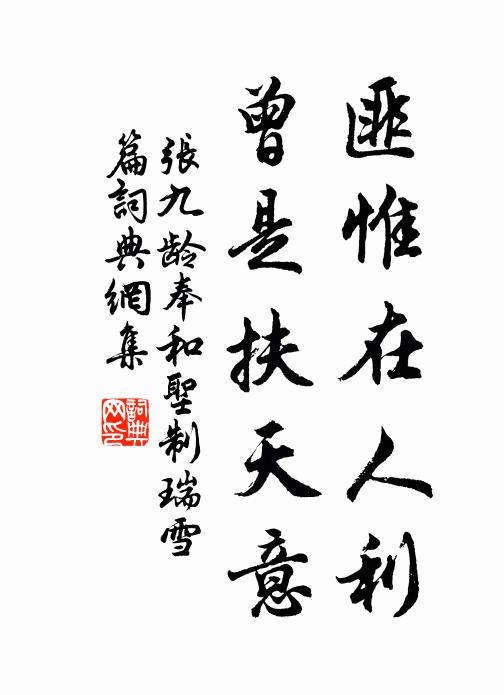 匪惟在人利
曾是扶天意
張九龄奉和聖制瑞雪
篇詞典網集
詞典
网印